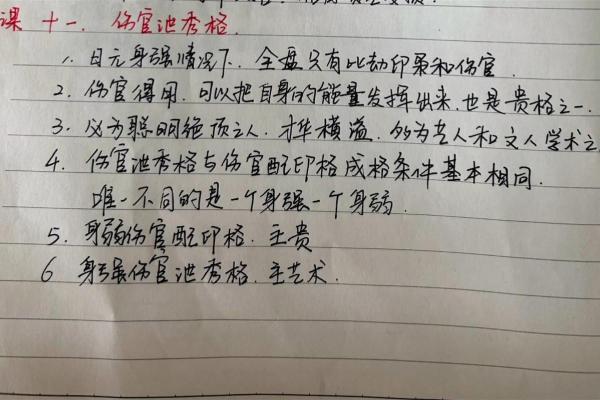 课十一、伤官泄秀格.
1、日元身强情况下.全盘只有比劫印枭和伤官.
2、伤官得用.可以把自身的能量发挥出来.也是贵格之一.
3、必为聪明绝顶之人.才华横溢.多为艺人和文人学术之
4、伤官泄秀格与伤官配印格成格条件基本相同.
唯一不同的是一个身强一个身弱.
5、身弱伤官配印格.主贵
6 身强伤官泄秀格.主艺术.